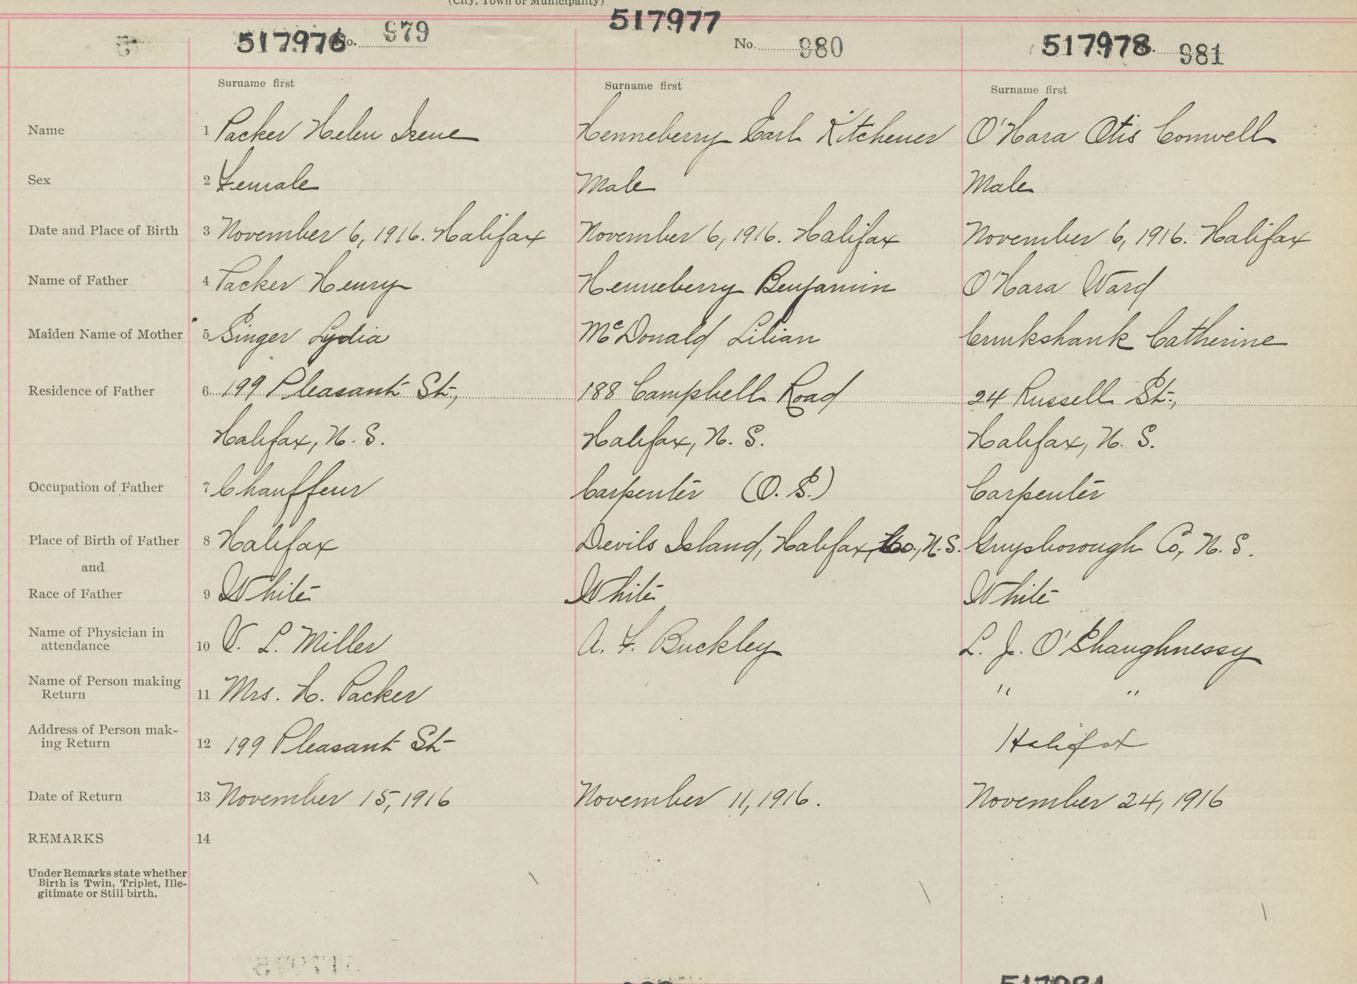 (City, Town or Municipality)
517976 No. 979
517977
No. 980
517978 981
Surname first
Surname first
Surname first
Name 1 Packer Helen Irene
Henneberry Earl Kitchener
O'Hara Otis Conwell
Sex 2 Female
Male
Male
Date and Place of Birth 3 November 6, 1916. Halifax
November 6, 1916. Halifax
November 6, 1916. Halifax
Name of Father 4 Packer Henry
Henneberry Benjamin
O'Hara Ward
Maiden Name of Mother 5 Singer Lydia
McDonald Lilian
Crunkshank Catherine
Residence of Father 6 199 Pleasant St.,
188 Campbell Road
24 Russell St.,
Halifax, N. S.
Halifax, N. S.
Halifax, N. S.
Occupation of Father 7 Chauffeur
Carpenter (O. S.)
Carpenter
Place of Birth of Father 8 Halifax
Devils Island, Halifax, Co., N.S.
Guysborough Co, N. S.
and
Race of Father 9 White
White
White
Name of Physician in
attendance 10 V. L. Miller
A. F. Buckley
L. J. O'Shaughnessy
Name of Person making
Return 11 Mrs. H. Packer
" "
Address of Person mak-
ing Return 12 199 Pleasant St
Halifax
Date of Return 13 November 15, 1916
November 11, 1916.
November 24, 1916
REMARKS 14
Under Remarks state whether
Birth is Twin, Triplet, Ille-
gitimate or Still birth.
517981